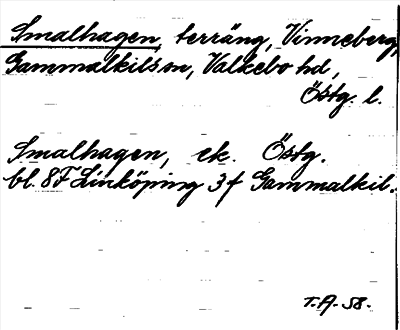 Smalhagen, terräng, Vinneberg,
Gammalkils sn, Valkebo hd,
Östg. l.
Smalhagen, ek. Östg.
bl. 8F Linköping 3f Gammalkil.
T.A. 58.